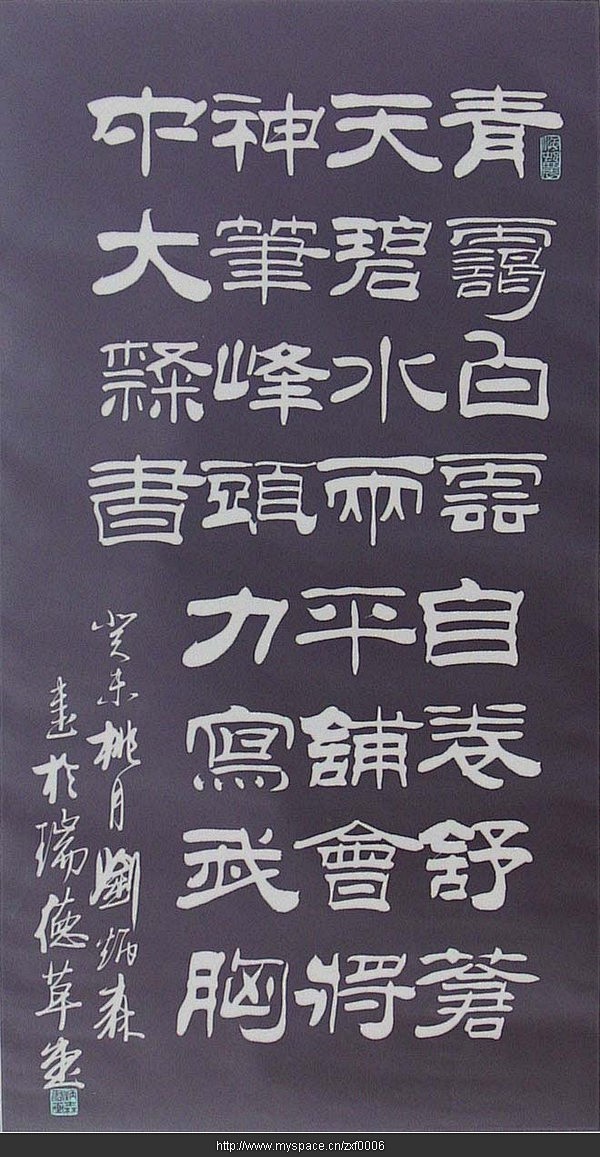 青靄白雲自卷舒蒼
天碧水兩平舖會將
神筆峰頭力寫我胸
中大隸書
癸未桃月劉炳森
書於瑞德草堂
http://www.myspace.cn/zxf0006